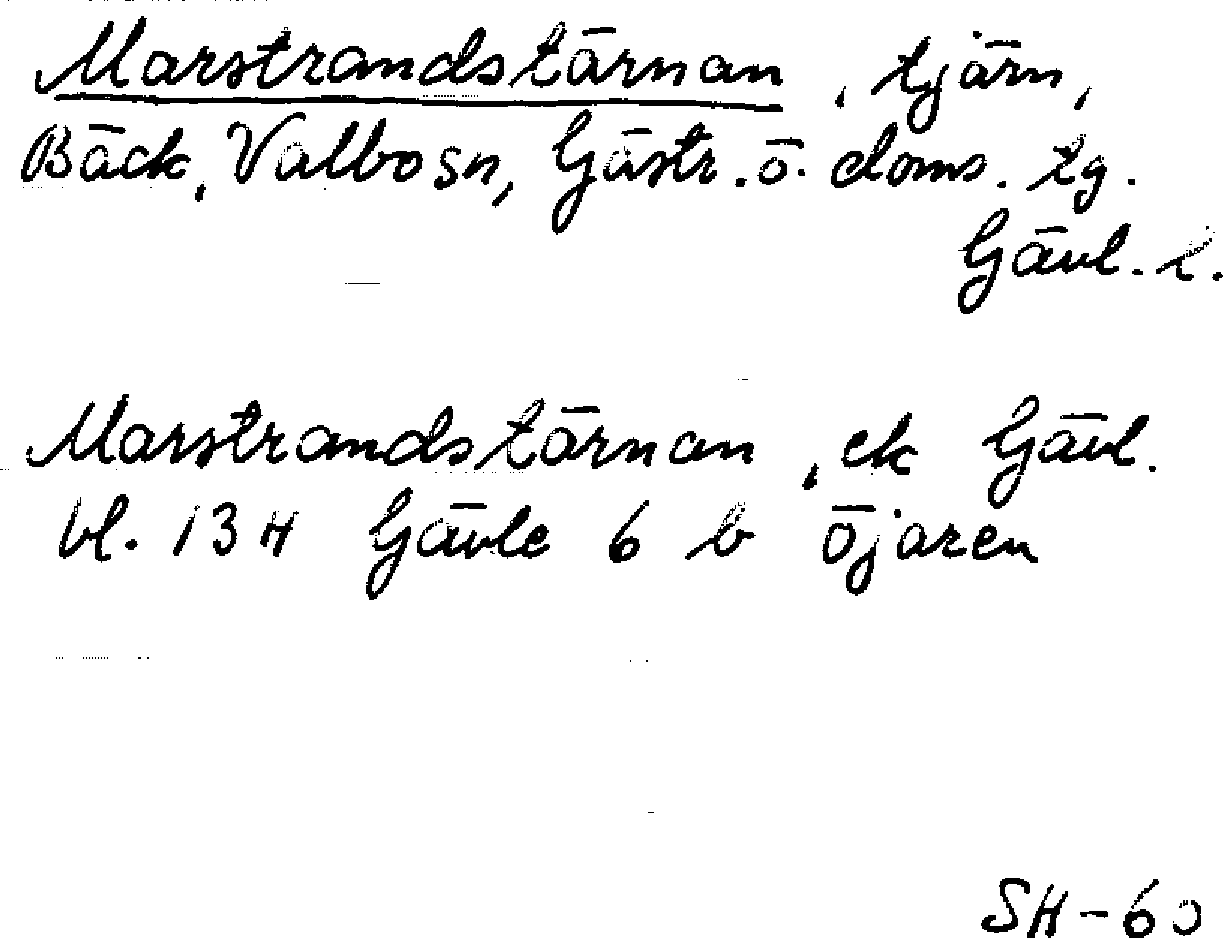 Marstrandstärnan, tjärn,
Bäck, Valbo sn, Gästr. ö. doms. tg.
Gävl. l.
Marstrandstärnan, ek Gävl.
bl. 13 H Gävle 6 b Öjaren
SH-60